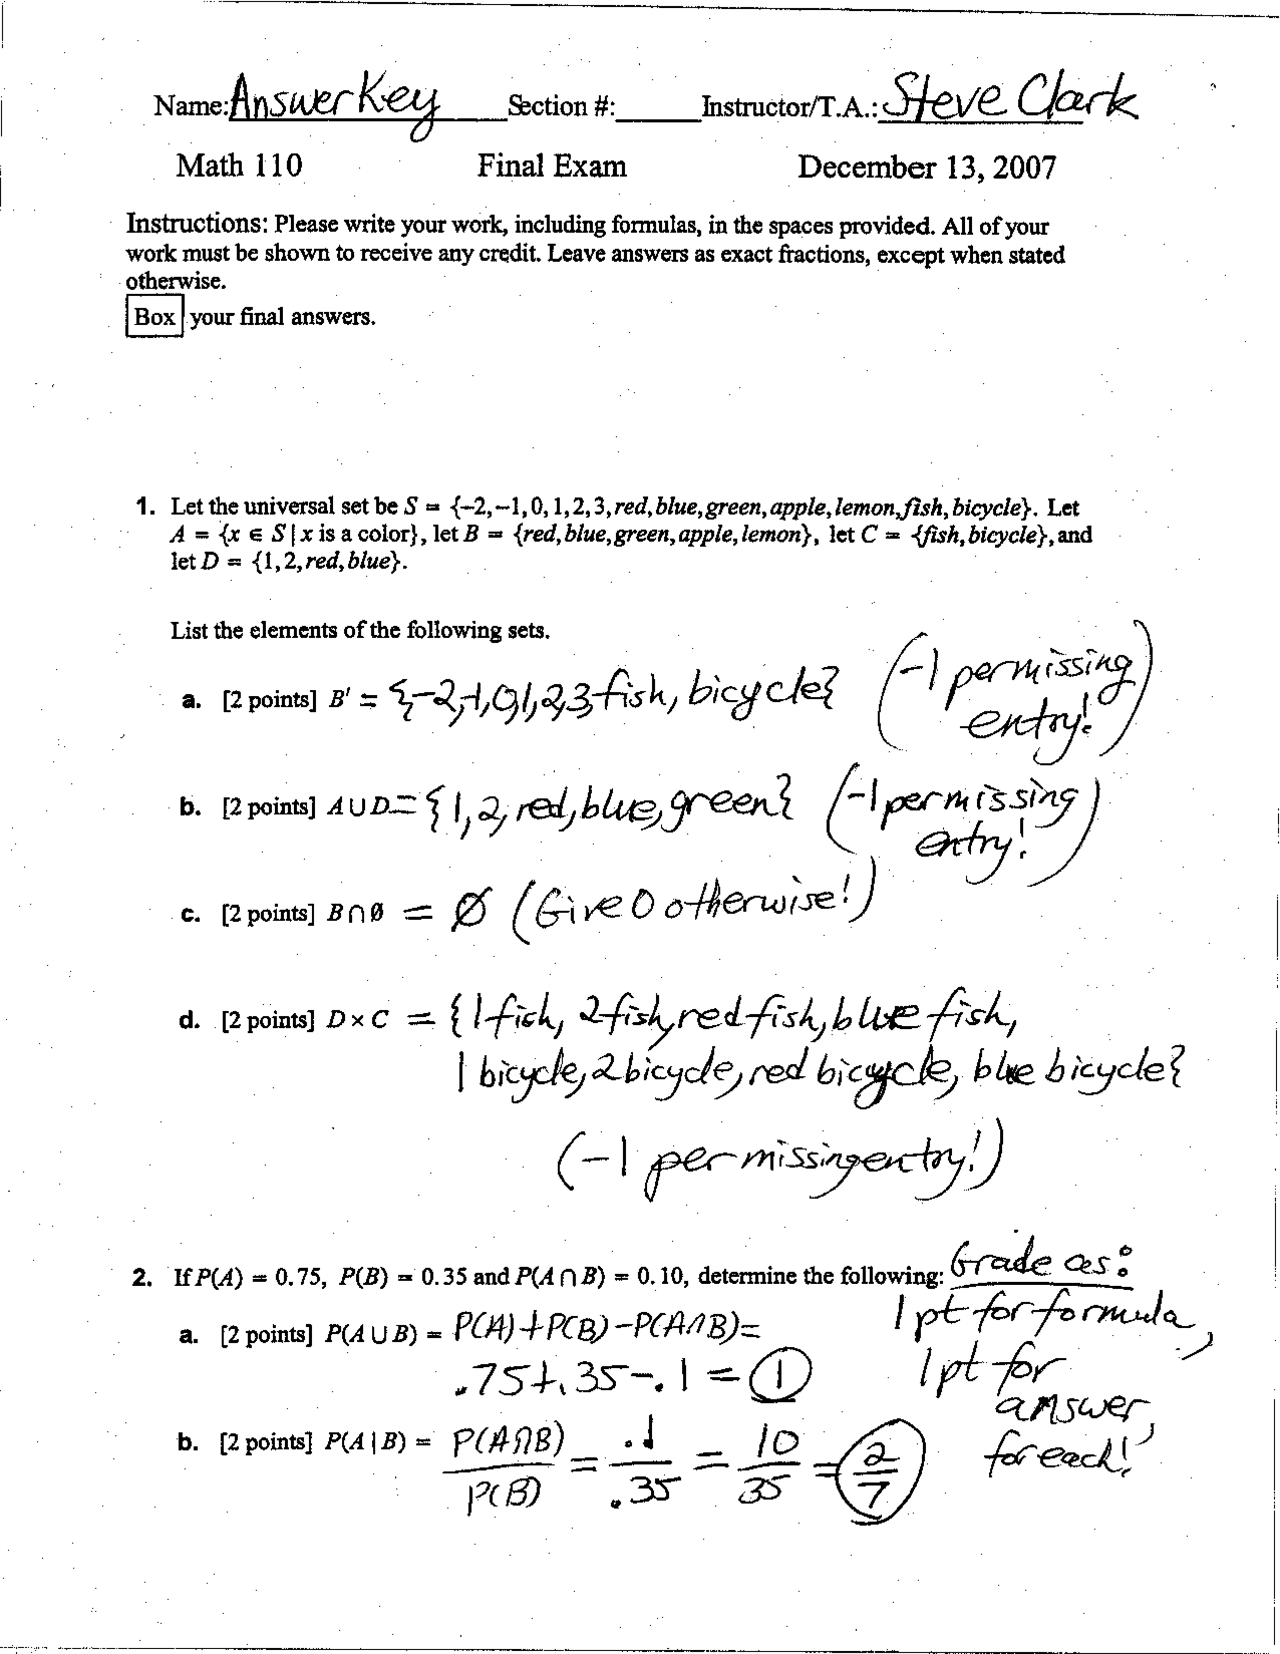 Name: Answer Key Section #: Instructor/T.A.: Steve Clark
Math 110 Final Exam December 13, 2007
Instructions: Please write your work, including formulas, in the spaces provided. All of your
work must be shown to receive any credit. Leave answers as exact fractions, except when stated
otherwise.
Box your final answers.
1. Let the universal set be S = {-2,-1,0,1,2,3,red,blue,green,apple,lemon,fish,bicycle}. Let
A = {x ∈ S | x is a color}, let B = {red,blue,green,apple,lemon}, let C = {fish,bicycle}, and
let D = {1,2,red,blue}.
List the elements of the following sets.
a. [2 points] B′ = {-2,-1,0,1,2,3,fish, bicycle} (-1 per missing
entry!)
b. [2 points] A ∪ D = {1, 2, red, blue, green} (-1 per missing
entry!)
c. [2 points] B ∩ ∅ = ∅ (Give 0 otherwise!)
d. [2 points] D × C = {1 fish, 2 fish, red fish, blue fish,
1 bicycle, 2 bicycle, red bicycle, blue bicycle}
(-1 per missing entry!)
2. If P(A) = 0.75, P(B) = 0.35 and P(A ∩ B) = 0.10, determine the following: Grade as:
a. [2 points] P(A ∪ B) = P(A)+P(B)-P(A∩B)= 1 pt for formula,
.75+.35-.1 = 1 1 pt for
answer,
b. [2 points] P(A | B) = P(A∩B)/P(B) = .1/.35 = 10/35 = 2/7 for each!